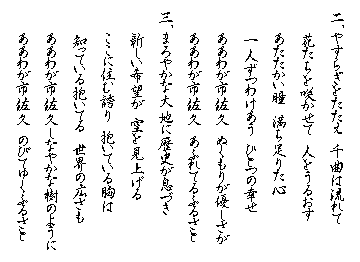 二、やすらぎをたたえ 千曲は流れて
花たちを咲かせて 人をうるおす
あたたかい瞳 満ち足りた心
一人ずつわけあう ひとつの幸せ
ああわが市佐久 ぬくもりが優しさが
ああわが市佐久 あふれてるふるさと
三、まろやかな大地に歴史が息づき
新しい希望が 空を見上げる
ここに住む誇り 抱いている胸は
知っている抱いてる 世界の広さも
ああわが市佐久 しなやかな樹のように
ああわが市佐久 のびてゆくふるさと